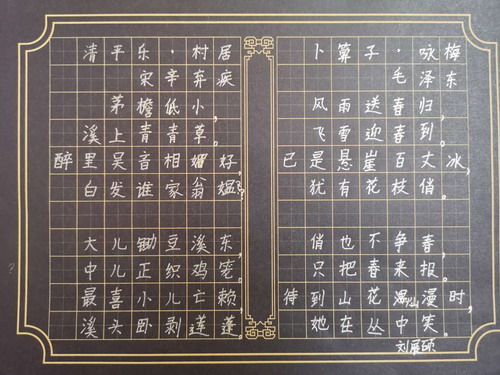 清平乐·村居
宋辛弃疾
茅檐低小，
溪上青青草。
醉里吴音相媚好，
白发谁家翁媪？
大儿锄豆溪东，
中儿正织鸡笼。
最喜小儿亡赖，
溪头卧剥莲蓬。
卜算子·咏梅
毛泽东
风雨送春归，
飞雪迎春到。
已是悬崖百丈冰，
犹有花枝俏。
俏也不争春，
只把春来报。
待到山花烂漫时，
她在丛中笑。
刘展硕